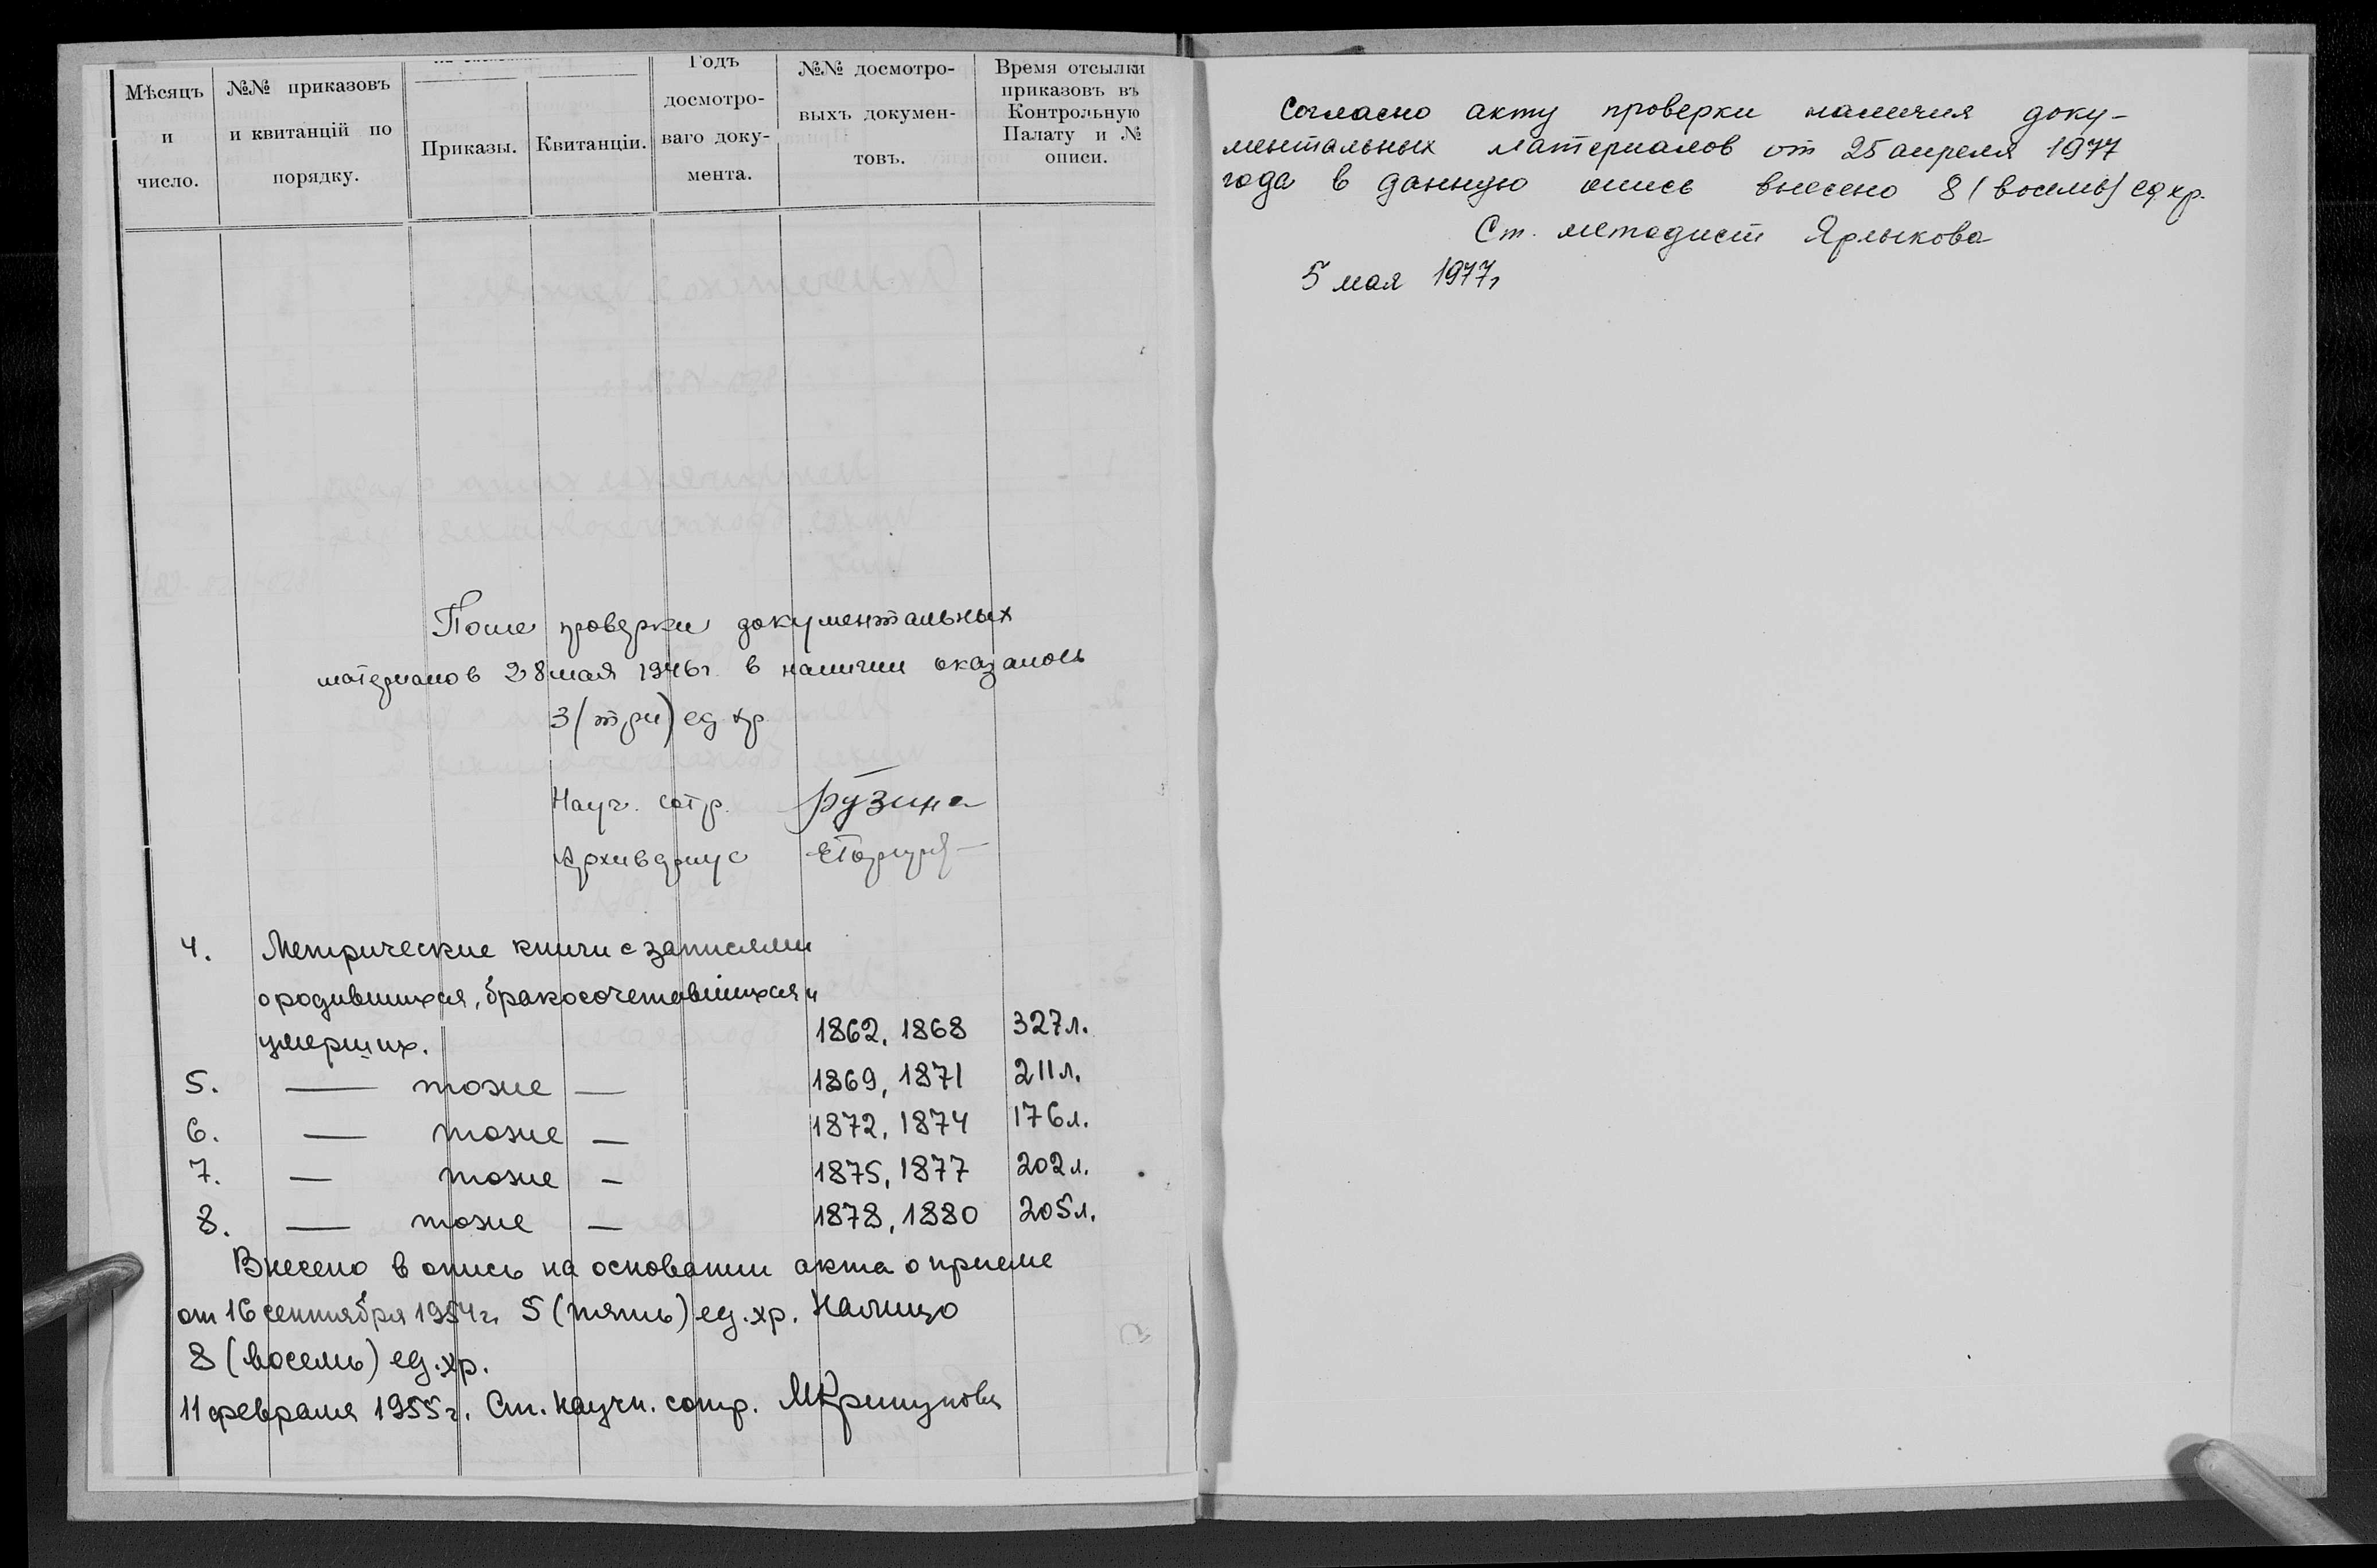 Мѣсяцъ и число.
№№ приказовъ и квитанцій по порядку.
Приказы.
Квитанціи.
Годъ досмотро-
ваго доку-
мента.
№№ досмотро-
выхъ докумен-
товъ.
Время отсылки
приказовъ въ
Контрольную
Палату и №
описи.
После проверки документальных
материалов 28 мая 1946г. в наличии оказалось
3 (три) ед хр.
Науч. сотр. Рузина
Архивариус
4. Метрические книги с записями
о родившихся, бракосочетавшихся и
умерших. 1862, 1868 327л.
5. — тоже — 1869, 1871 211л.
6. — тоже — 1872, 1874 176л.
7. — тоже — 1875, 1877 202л.
8. — тоже — 1878, 1880 205л.
Внесено в опись на основании акта о приеме
от 16 сентября 1954г. 5 (пять) ед.хр. Налицо
8 (восемь) ед.хр.
11 февраля 1955г. Ст. научн. сотр.
Согласно акту проверки наличия доку-
ментальных материалов от 25 апреля 1977
года в данную опись внесено 8 (восемь) ед.хр.
Ст. методист Ярлыкова
5 мая 1977г